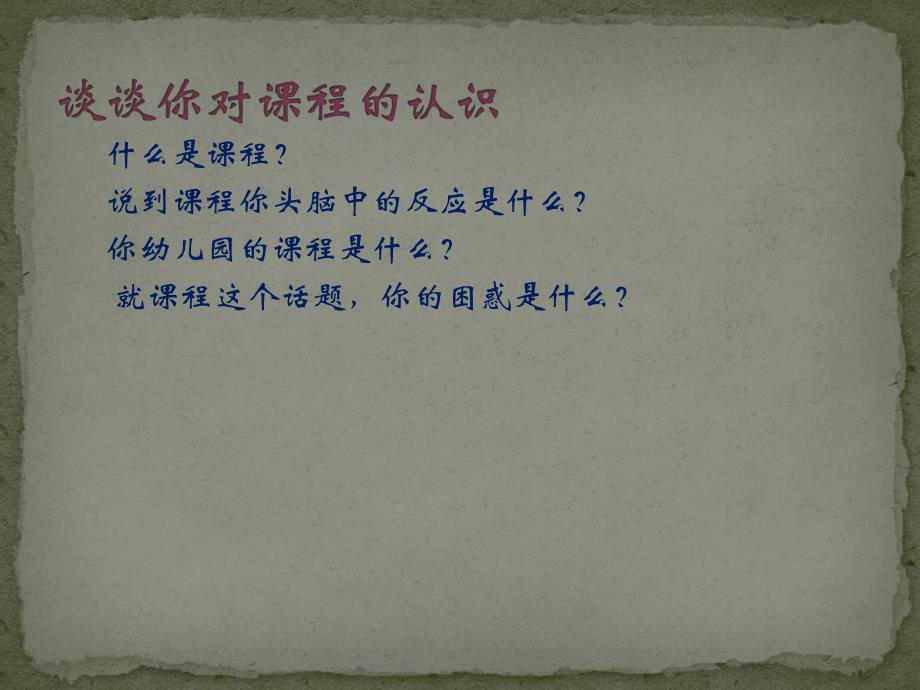 谈谈你对课程的认识
什么是课程?
说到课程你头脑中的反应是什么?
你幼儿园的课程是什么?
就课程这个话题，你的困惑是什么?